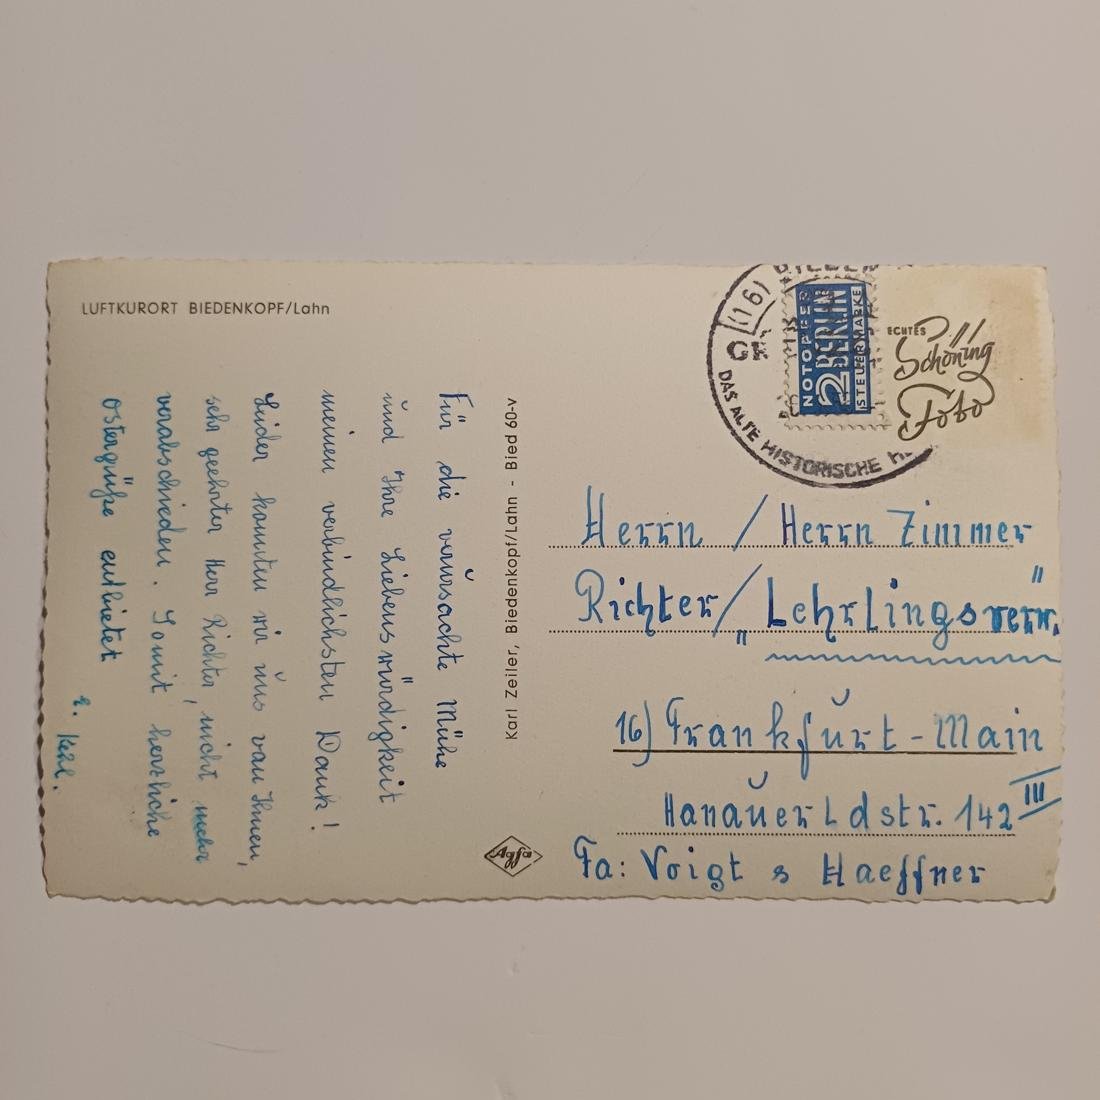 LUFTKURORT BIEDENKOPF/Lahn
Für die verŭrsachte Mühe
ŭnd Ihre Liebenswürdigkeit
meinen verbindlichsten Dank!
Leider konnten wir ŭns von Ihnen,
sehr geehrter Herr Richter, nicht mehr
verabschieden. Somit herzliche
Ostergrüße entbietet
Karl Zeiler, Biedenkopf/Lahn - Bied 60-v
Agfa
(16)
DAS ALTE HISTORISCHE
NOTOPFER
2 BERLIN
STEUERMARKE
ECHTES
Schöning
Foto
Herrn / Herrn Zimmer
Richter / "Lehrlingsverw."
16) Frankfŭrt-Main
Hanaŭer Ldstr. 142 III
Fa: Voigt & Haeffner